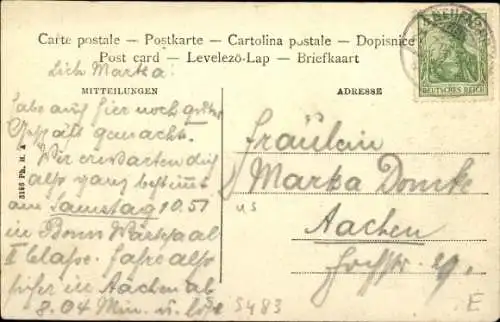 Carte postale — Postkarte — Cartolina postale — Dopisnice
Post card — Levelező-Lap — Briefkaart
DEUTSCHES REICH
MITTEILUNGEN
ADRESSE
Lieb Marka!
habe auch hier noch gutes
Geschäft gemacht.
Wir erwarten dich
also ganz bestimmt
am Samstag 10.51
in Bonn Wartesaal
II Classe. Fahre also
hier in Aachen ab
8.04 Min. u.
Fräulein
Marka
Aachen
3166 Ph. H. A
5483
E